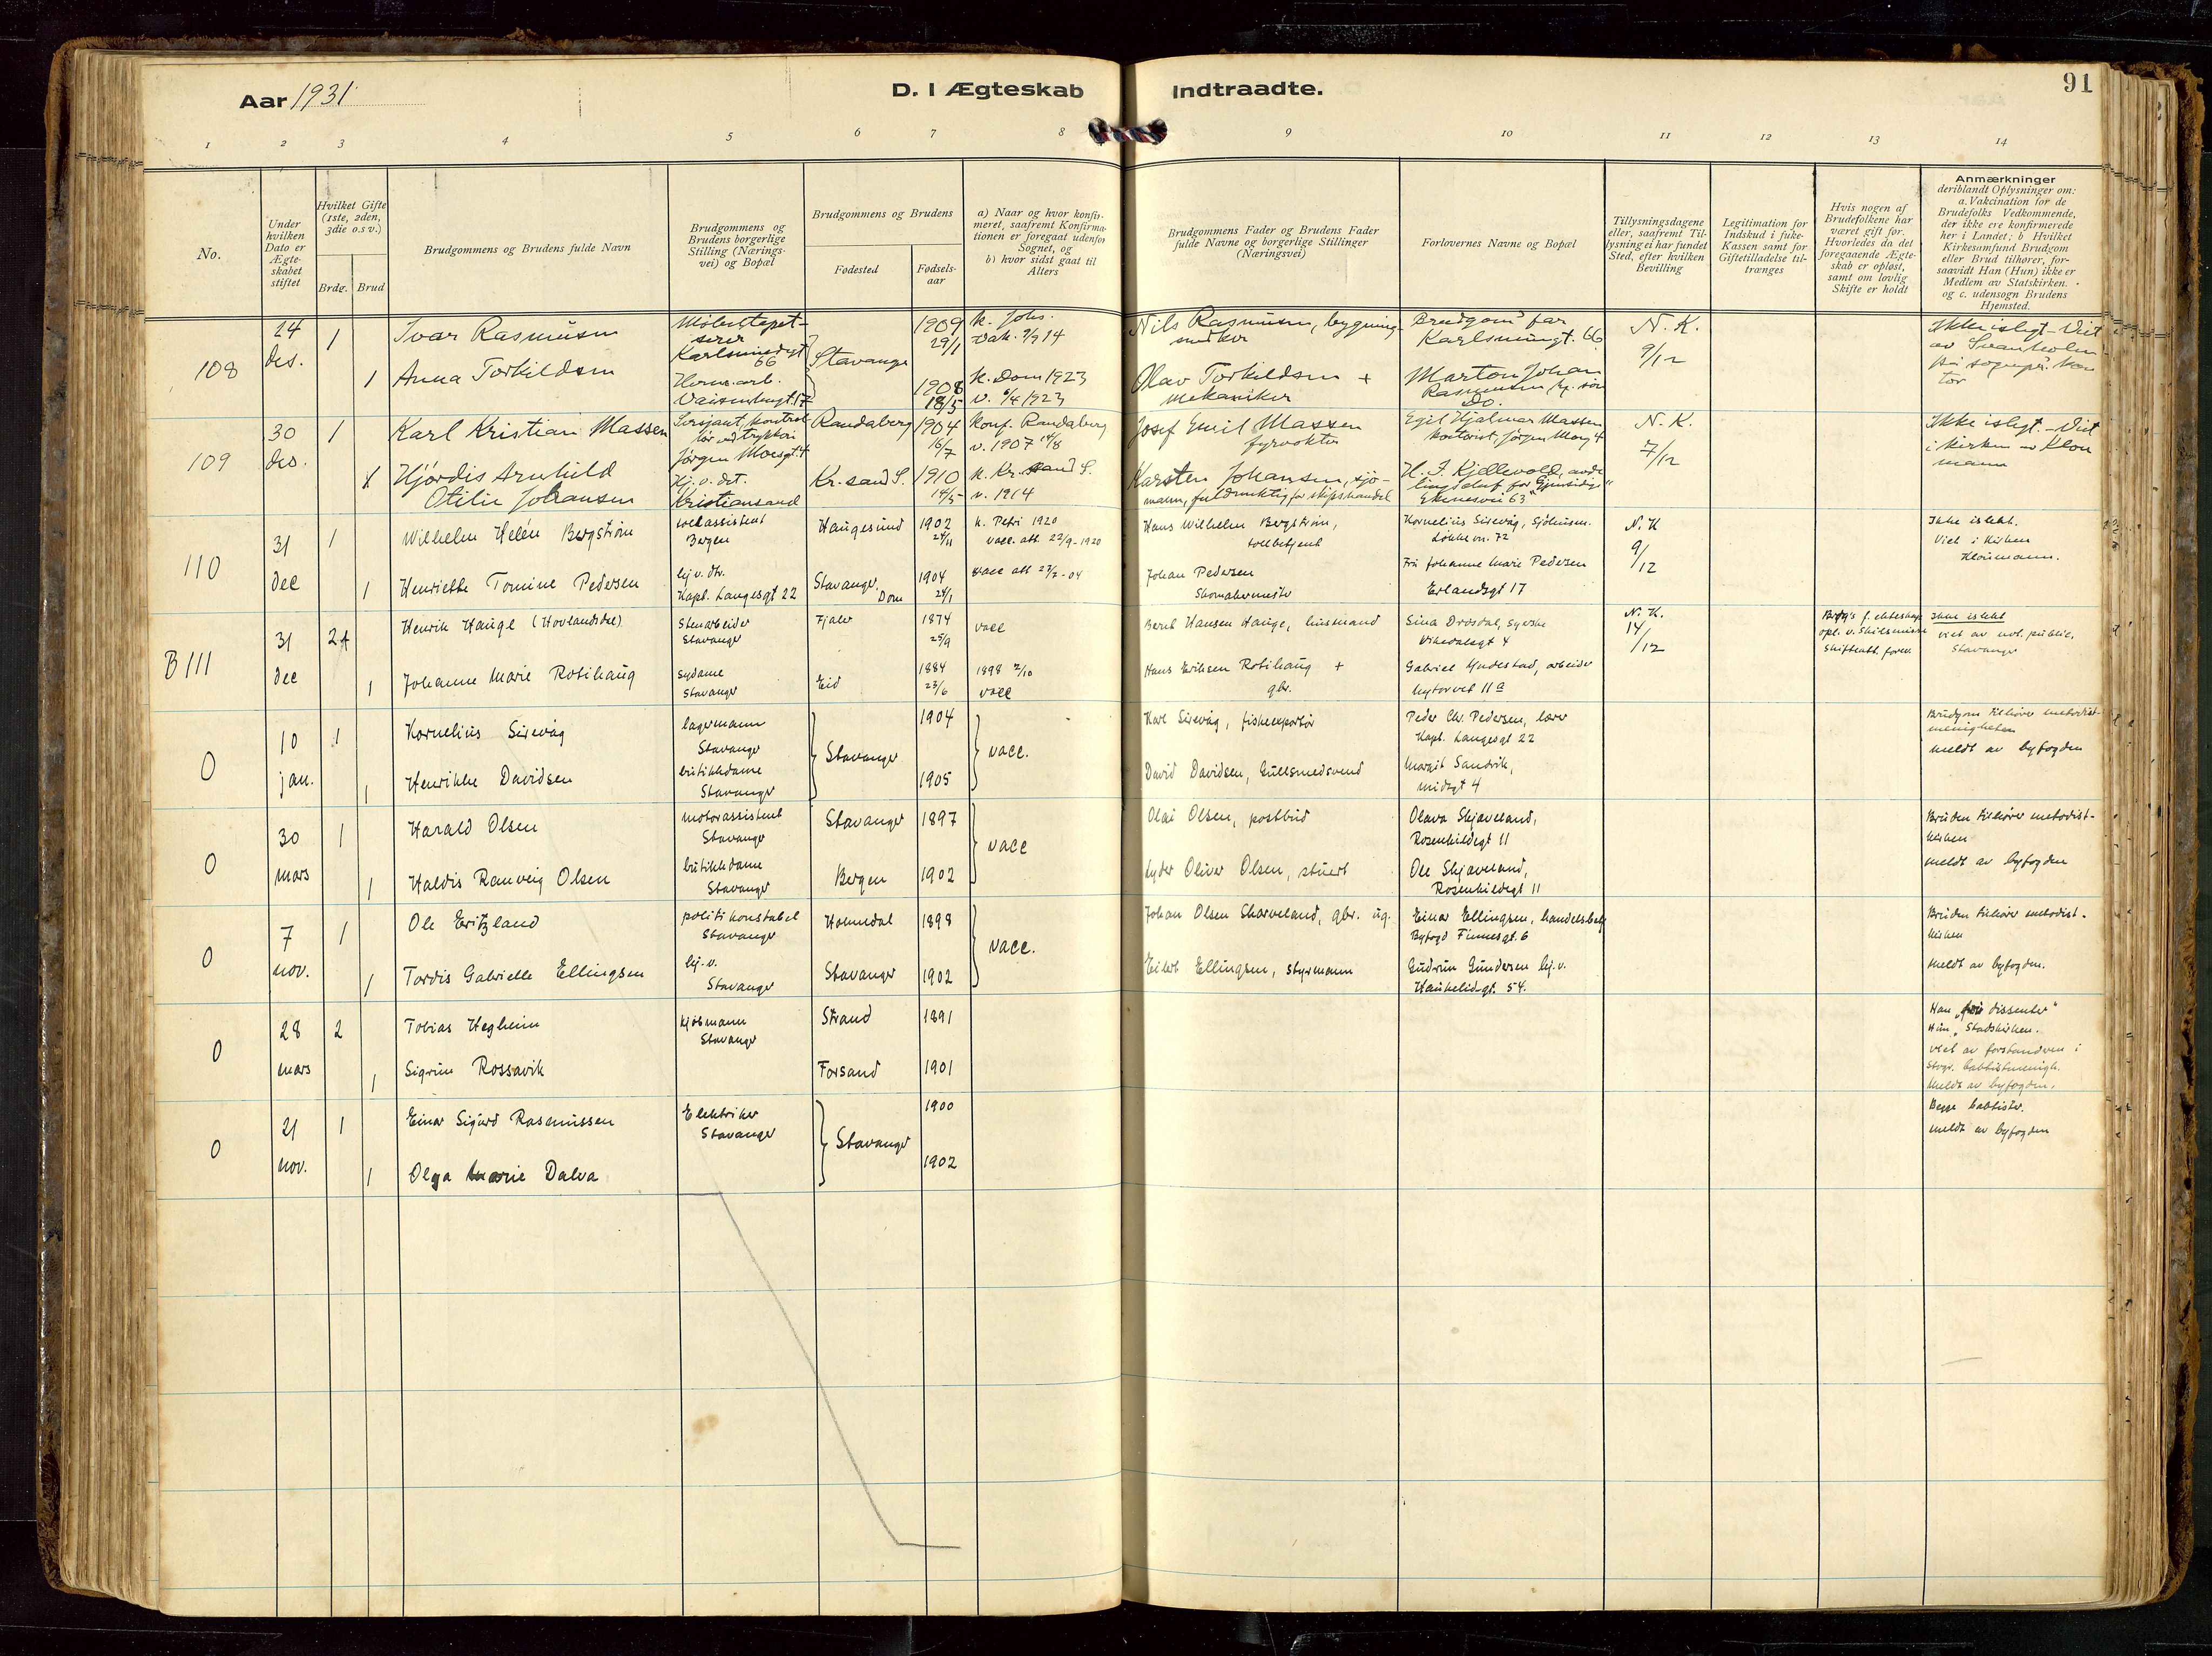 Aar 1931
D. I Ægteskab Indtraadte.
91
1 2 3 4 5 6 7 8 9 10 11 12 13 14
No.
Under
hvilken
Dato er
Ægte-
skabet
stiftet
Hvilket Gifte
(1ste, 2den,
3die o.s.v.)
Brdg. Brud
Brudgommens og Brudens fulde Navn
Brudgommens og
Brudens borgerlige
Stilling (Nærings-
vei) og Bopæl
Brudgommens og Brudens
Fødested
Fødsels-
aar
a) Naar og hvor konfir-
meret, saafremt Konfirma-
tionen er foregaat udenfor
Sognet, og
b) hvor sidst gaat til
Alters
Brudgommens Fader og Brudens Fader
fulde Navne og borgerlige Stillinger
(Næringsvei)
Forlovernes Navne og Bopæl
Tillysningsdagene
eller, saafremt Til-
lysning ei har fundet
Sted, efter hvilken
Bevilling
Legitimation for
Indskud i fuke-
Kassen samt for
Giftetilladelse til-
trænges
Hvis nogen af
Brudefolkene har
været gift før.
Hvorledes da det
foregaaende Ægte-
skab er opløst,
samt om lovlig
Skifte er holdt
Anmærkninger
deriblandt Oplysninger om:
a. Vakcination for de
Brudefolks Vedkommende,
der ikke ere konfirmerede
her i Landet; b Hvilket
Kirkesamfund Brudgom
eller Brud tilhører, for-
saavidt Han (Hun) ikke er
Medlem av Statskirken.
og c. udensogn Brudens
Hjemsted.
108
24
des.
1
Ivar Rasmussen
Møbeltapet-
serer
Karlsminnegt
66
Stavanger
1909
29/1
k. Johs.
Vak. 9/9 14
Nils Rasmussen, bygnings-
snekker
Brudgoms far
Karlsmingt. 66
N. K.
9/12
Ikke isligt - Viet
av Svanholm
på sognepr. kon
tor
1
Anna Torkildsen
Herm. arb.
Vaisenhusgt. 17
1908
18/5
k. Dom 1923
v. 6/4 1923
Olav Torkildsen +
mekaniker
Marton Johan
Rasmussen
Do.
109
30
des.
1
Karl Kristian Massen
Sersjant, kontrol
lør ved trykkeri
Jørgen Moesgt. 4
Randaberg
1904
16/7
konf. Randaberg
v. 1907 14/8
Josef Emil Massen
fyrvokter
Egil Hjalmar Massen
kontorist, Jørgen Moeg 4
N. K.
7/12
Ikke isligt. - Viet
i kirken av Klou
mann
1
Hjørdis Arnhild
Otilie Johansen
Hj. v. det.
Kristiansand
Kr. sand S.
1910
14/5
k. Kr. sand S.
v. 1914
Karsten Johansen, sjø-
mann, fuldmektig for skipshandel
H. J. Kjellevold, avde
lingschef for Gjensidige
Ekenesvei 63
110
31
dec
1
Wilhelm Helén Bergstrøm
tollassistent
Bergen
Haugesund
1902
24/11
k. Petri 1920
vacc. att 22/9-1920
Hans Wilhelm Bergstrøm,
tollbetjent
Kornelius Sirevåg, Sjøhusm.
Løkkevn. 72
N. K
9/12
Ikke islekt.
Viet i kirken
Kloumann.
1
Henriette Tomine Pedersen
hj v. dtr.
Kapt. Langesgt 22
Stavanger,
Dom
1904
24/1
vacc att 27/2-04
Johan Pedersen
Skomakermester
Frü Johanne Marie Pedersen
Erlandsgt 17
B 111
31
dec
2
Henrik Hauge (Hovlandsdal)
Stenarbeider
Stavanger
Fjaler
1874
25/9
vacc
Bernt Hansen Hauge, husmand
Sina Drosdal, syerske
Vikedalsgt 4
N. K.
14/12
Brdg's f. ekteskap
opl. v. Skilsmisse
Skifteatt. forev.
Ikke islekt
viet av not. public.
Stavanger
1
Johanne Marie Rotihaug
Sydame
Stavanger
Eid
1884
23/6
1898 2/10
vacc
Hans Eriksen Rotihaug +
gbr.
Gabriel Yndestad, arbeider
Nytorvet 11 a
0
10
jan.
1
Kornelius Sirevåg
lagermann
Stavanger
Stavanger
1904
vacc.
Karl Sirevåg, fiskeexportør
Peder Chr. Pedersen, lærer
Kapt. Langesgt 22
Brudgom tilhører metodist-
menigheten
meldt av byfogden
1
Henrikke Davidsen
butikkdame
Stavanger
1905
David Davidsen, Gullsmedsvend
Margit Sandvik,
Midtgt 4
0
30
mars
1
Harald Olsen
motorassistent
Stavanger
Stavanger
1897
vacc
Olai Olsen, postbud
Olava Skjaveland,
Rosenkildegt 11
Bruden tilhører metodist-
kirken
meldt av byfogden
1
Haldis Ranveig Olsen
butikkdame
Stavanger
Bergen
1902
Lyder Oliver Olsen, stuert
Ole Skjaveland,
Rosenkildegt 11
0
7
nov.
1
Ole Eritzland
politikonstabel
Stavanger
Holmedal
1898
vacc.
Johan Olsen Skarveland, gbr. ug.
Einar Ellingsen, handelsbetj
Byfogd Finnesgt. 6
Bruden tilhører metodist-
kirken
meldt av byfogden.
1
Tordis Gabrielle Ellingsen
hj. v.
Stavanger
Stavanger
1902
Eilert Ellingsen, styrmann
Gudrun Gundersen hj. v.
Haukelidgt. 54.
0
28
mars
2
Tobias Hegheim
kjøbmann
Stavanger
Strand
1891
Han „fri dissenter"
Hun „Statskirken.
viet av forstanderen i
Stvgr. babtistmenigh.
meldt av byfogden.
1
Sigrun Rossavik
Forsand
1901
0
21
nov.
1
Einar Sigurd Rasmussen
Elektriker
Stavanger
Stavanger
1900
Begge babtister.
meldt av byfogden
1
Olga Marie Dalva
1902